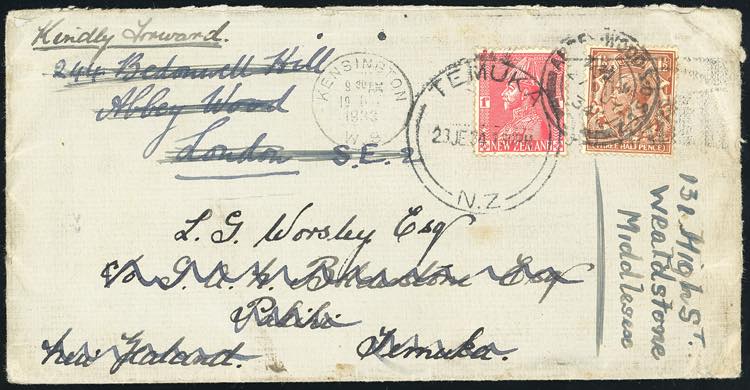 Kindly forward.
244 Bedonwell Hill
Abbey Wood
London S.E. 2
KENSINGTON
9 30 PM
1933
W. 8
TEMUKA
N.Z.
ABBEY WOOD
1
NEW ZEALAND
THREE HALF PENCE
L. G. Worsley Esq
c/o Esq
New Zealand. Temuka.
131 High St.
Wealdstone
Middlesex